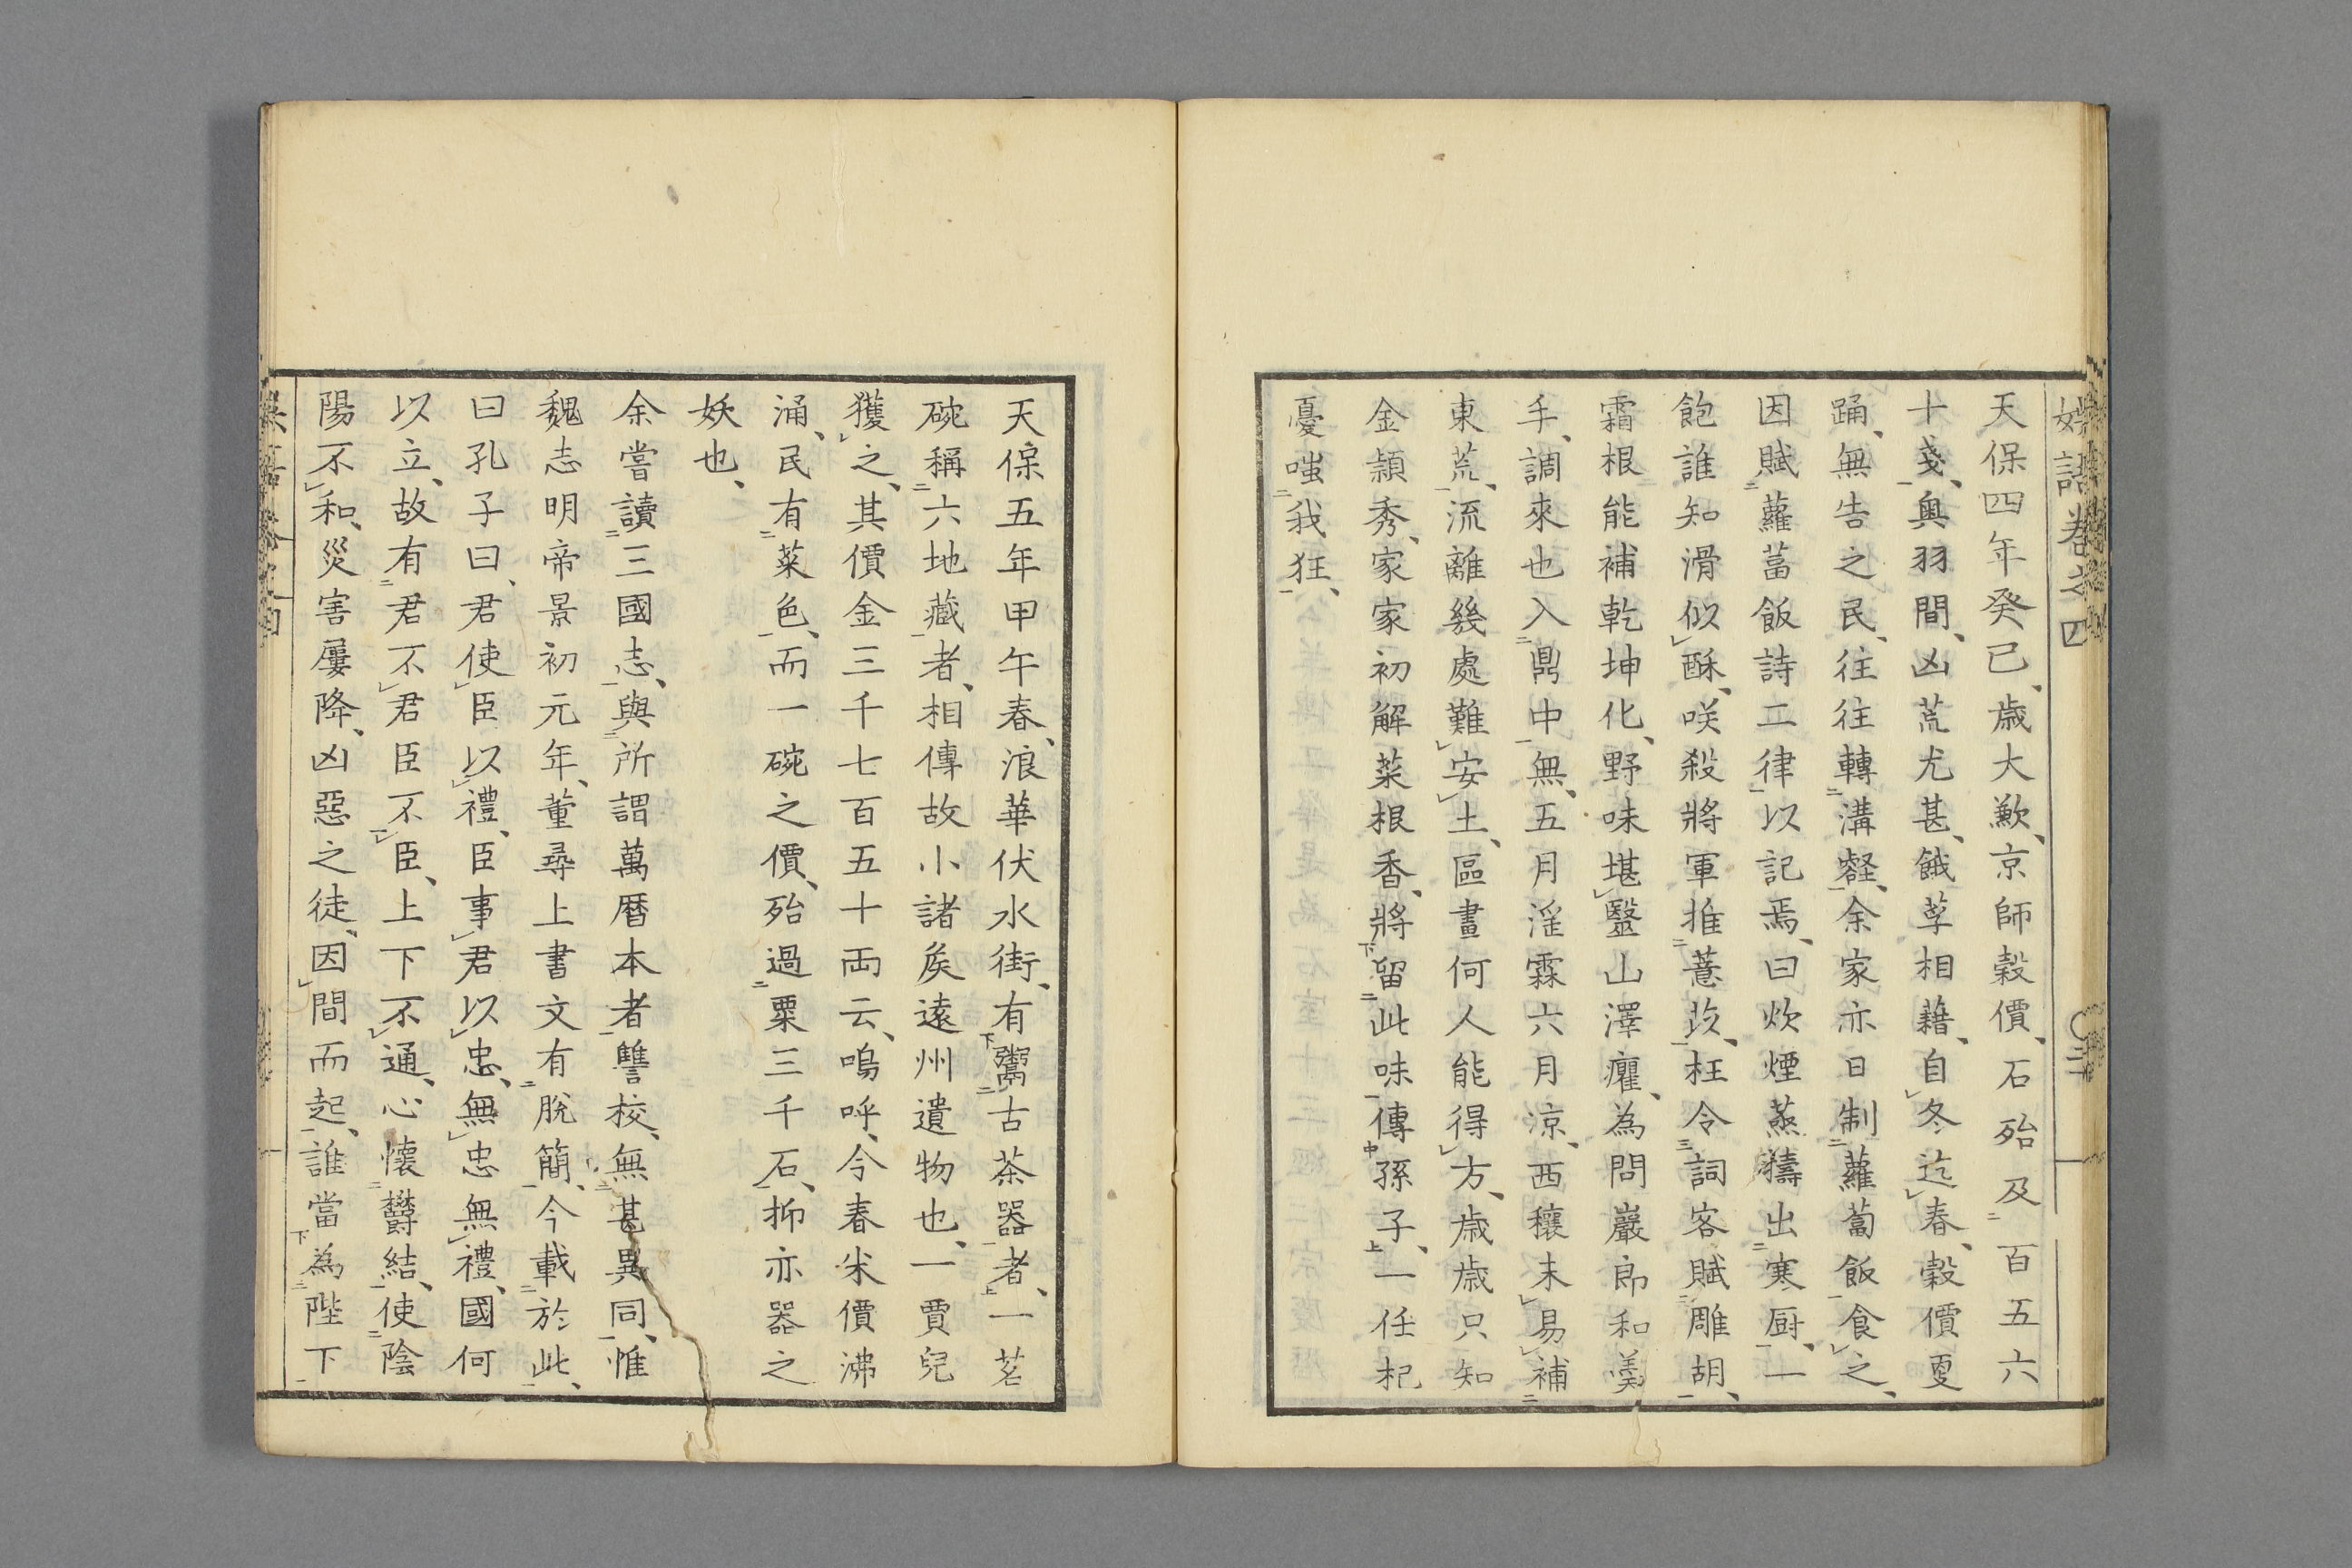 天保四年癸巳、歳大歉、京師穀價、石殆及百五六
十戔、奥羽間、凶荒尤甚、餓莩相藉、自冬迄春、穀價更
踊、無告之民、往往轉溝壑、余家亦日制蘿蔔飯食之、
因賦蘿葍飯詩二律、以記焉、曰炊煙蒸擣出寒厨、一
飽誰知滑似酥、咲殺將軍推薏苡、枉令詞客賦雕胡、
霜根能補乾坤化、野味堪毉山澤癯、為問巖郎和羹
手、調來也入鼎中無、五月淫霖六月凉、西穰未易補
東荒、流離幾處難安土、區畫何人能得方、歳歳只知
金頴秀、家家初解菜根香、將留此味傳孫子、一任杞
憂嗤我狂、
天保五年甲午春、浪華伏水街、有鬻古茶器者、一茗
碗稱六地藏者、相傳故小諸矦遠州遺物也、一賈兒
獲之、其價金三千七百五十両云、嗚呼、今春米價沸
涌、民有菜色、而一碗之價、殆過粟三千石、抑亦器之
妖也、
余嘗讀三國志、與所謂萬暦本者讐校、無甚異同、惟
魏志明帝景初元年、董尋上書文有脫簡、今載於此、
曰孔子曰、君使臣以禮、臣事君以忠、無忠無禮、國何
以立、故有君不君臣不臣、上下不通、心懷欝結、使陰
陽不和、災害屢降、凶惡之徒、因間而起、誰當為陛下